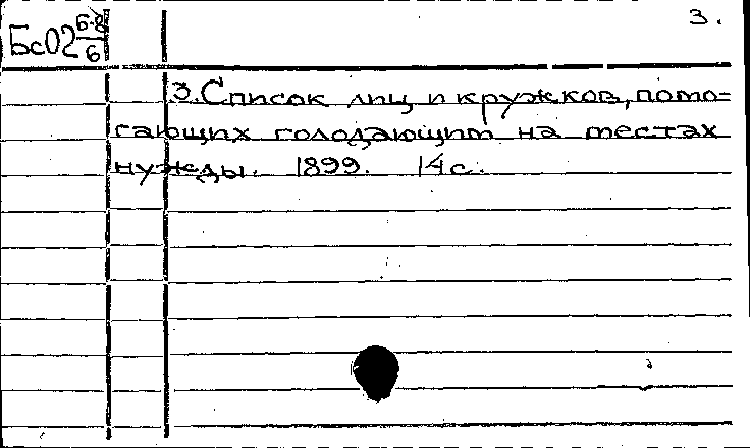 3.
Бс02 Б-8/6
3. Список лиц и кружков, помо-
гающих голодающим на местах
нужды. 1899. 14 с.